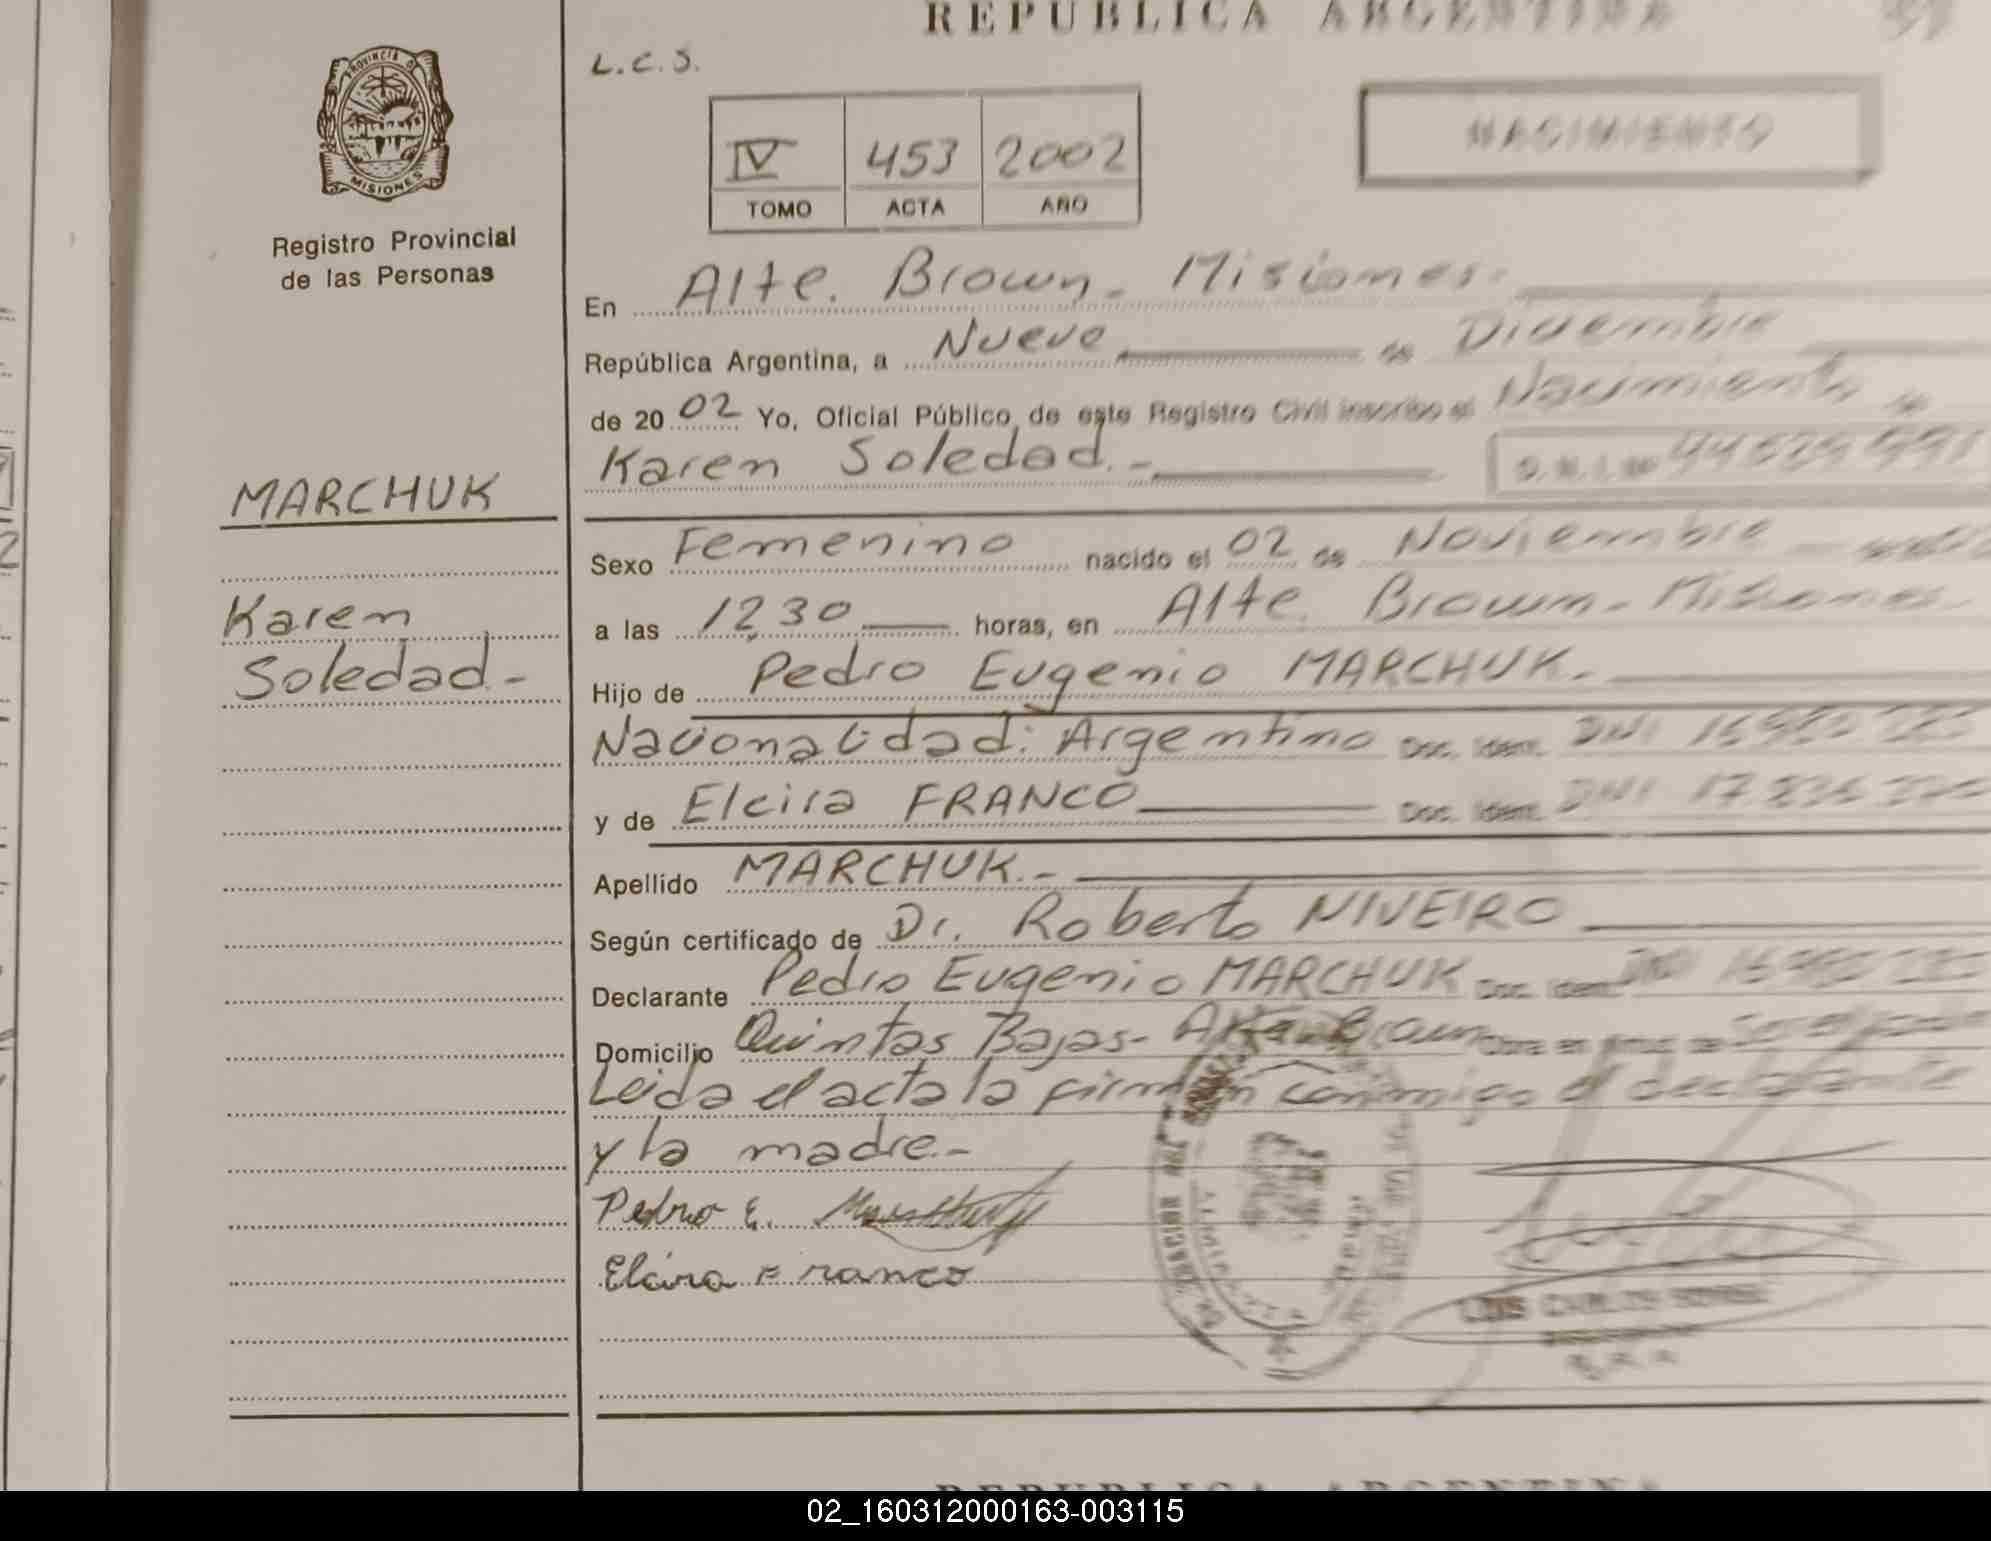 REPUBLICA ARGENTINA
L.C.S.
PROVINCIA D
MISIONES
Registro Provincial
de las Personas
IV 453 2002
TOMO ACTA AÑO
NACIMIENTO
En Alte. Brown - Misiones.
República Argentina, a Nueve de Diciembre
de 2002 Yo, Oficial Público de este Registro Civil inscribo el Nacimiento de
Karen Soledad.- D.N.I. Nº
MARCHUK
Karen
Soledad.-
Sexo Femenino nacido el 02 de Noviembre
a las 12,30 horas, en Alte. Brown - Misiones
Hijo de Pedro Eugenio MARCHUK.-
Nacionalidad: Argentino Doc. Ident. DNI
y de Elcira FRANCO Doc. Ident. DNI
Apellido MARCHUK.-
Según certificado de Dr. Roberto NIVEIRO
Declarante Pedro Eugenio MARCHUK Doc. Ident. DNI
Domicilio Quintas Bajas - Alte. Brown Obra en virtud de
Leida el acta la firman conmigo el declarante
y la madre.-
Pedro E.
Elcira Franco
LUIS CARLOS
REPUBLICA ARGENTINA
02_160312000163-003115